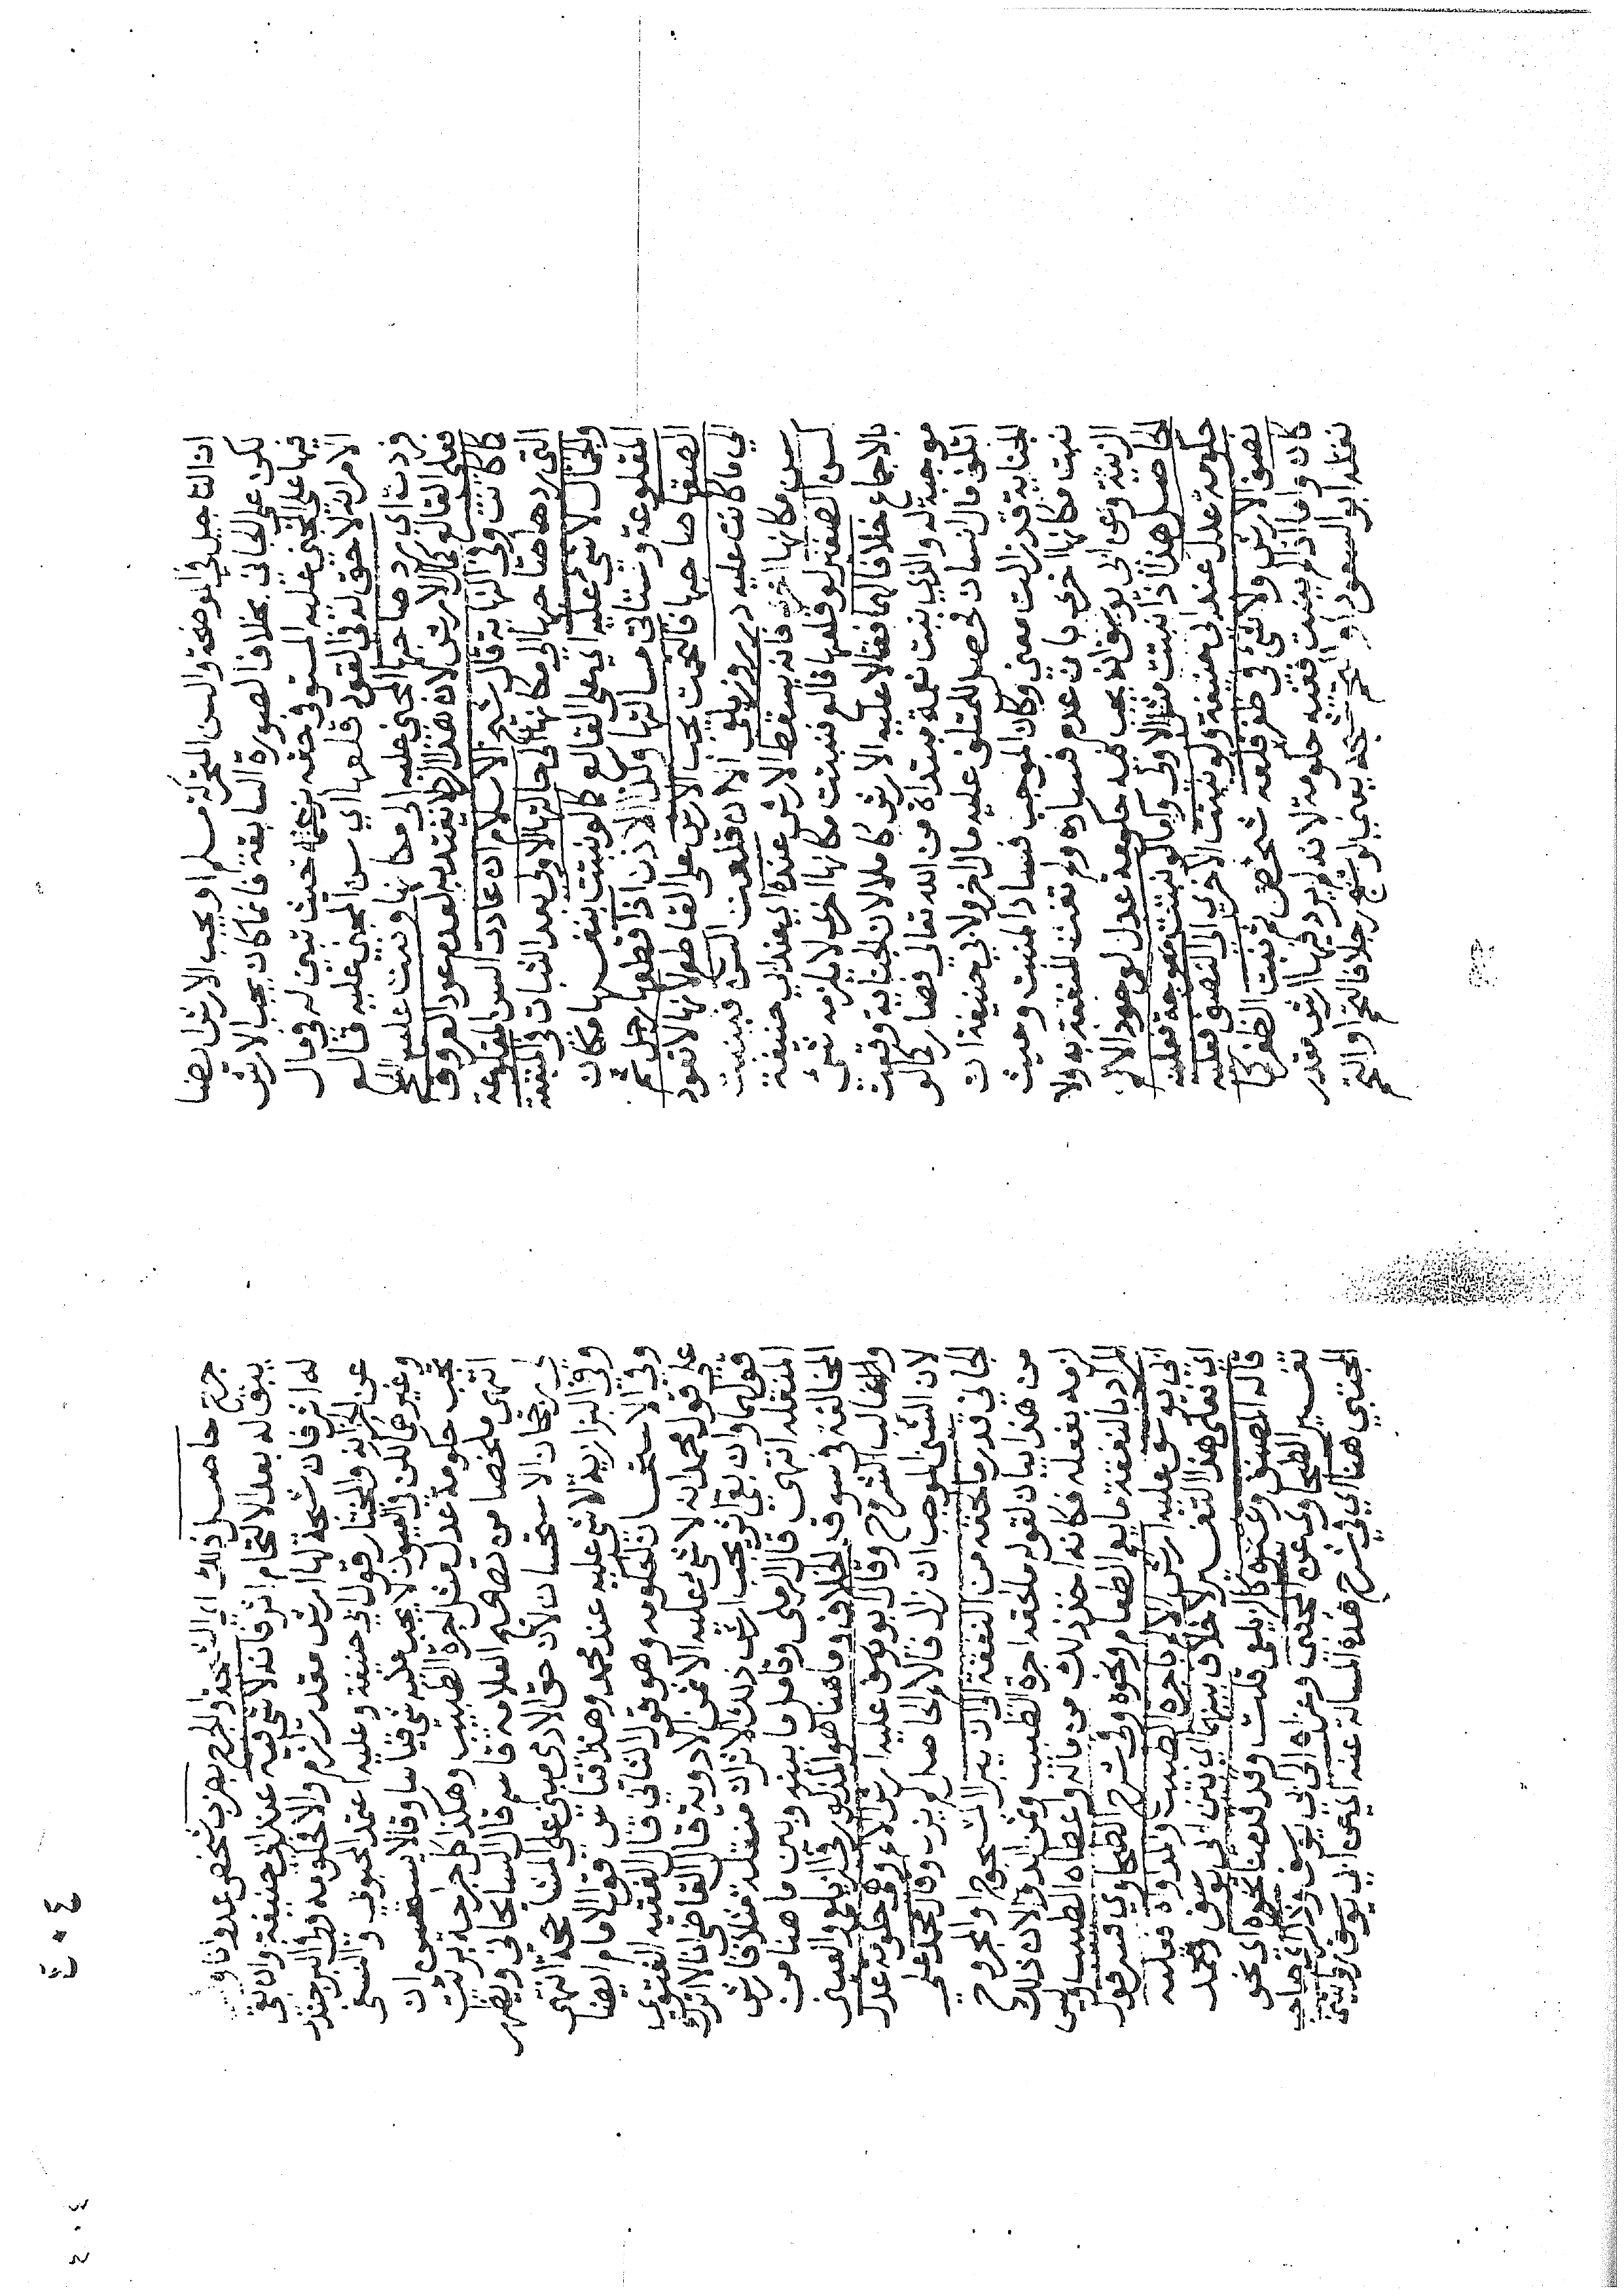 اذا التاجيل في الموضحة والسن المتحركة مسلم ويجب الارش ايضا
لكن على الجاني بخلاف الصورة السابقة فانما كان يجب الارش
فيها على المجني عليه المستوفي حقه بزعمه حيث تبين له في مال
الامر انه لا حق له في القود قلعها اي سن المجني عليه قالع
فردت اي ردها صاحبها المجني عليه الى مكانها ونبت عليها اللحم
فعلى القالع كمال الارش لان هذا لا يعتد به لعدم عود العروق
كما كانت وفي النهاية قال شيخ الاسلام ان عادت السن المقلوعة
التي ردها صاحبها الى مكانها الى حالتها الاولى بعد الثبات في المنفعة
والجمال لا شيء عليه اي على القالع كما لو نبتت بنفسها مكان
المقلوعة وستاتي مسالتها وكذا الاذن اذا قطعها رجل ثم
الصقها صاحبها فالتحمت يجب الارش على القاطع لانها لا تعود
الى ما كانت عليه درر وزيلعي الا ان قلعت السن فنبتت
سن مكانها اخرى فانه يسقط الارش عنده اي عند ابي حنيفة
كسن الصغير لو قلعها قالع فنبتت مكانها اخرى لا يلزمه شيء
بالاجماع خلافا لهما فقالا عليه الارش كاملا لان الجناية وقعت
موجبة له والذي نبت نعمة مبتداة من الله تعالى فصار كما لو
اتلف مال انسان فحصل للمتلف عليه مال اخر ولابي حنيفة ان
الجناية قد زالت معنى وكان الموجب فساد المنبت وحيث
نبت مكانها اخرى بان عدم فساده ولم تفت المنفعة به ولا
الزينة وعن ابي يوسف انه يجب فيه حكومة عدل لوجود الالم
الحاصل هذا اذا نبتت مثل الاولى واما لو نبتت معوجة فعليه
حكومة عدل عند ابي حنيفة ولو نبتت الاخرى الى النصف فعليه
نصف الارش ولا شيء في ظفر قلعه شخص ثم نبت الظفر كما
كان واما اذا لم ينبت ففيه حكومة لانه لم يرد فيها ارش مقدر
نقله ابو السعود او التحم شجة يعني لو شج رجلا فالتحم او التحم
جرح حاصل ذلك اي الشجة والجرح بضرب شخص عدوانا ولم
يبق له بعد الالتحام اثر فانه لا شيء فيه عند ابي حنيفة وان بقي
له اثر فان شجة لها ارش مقدر لزم والا فحكومة وفي البرجندي
عن الخزانة والمختار قول ابي حنيفة وعليه اعتمد المحبوبي والنسفي
وغيرهما لكن في العيون لا يجب عليه شيء قياسا وقالا يستحسن ان
تجب حكومة عدل مثل اجرة الطبيب وهكذا كل جراحة برئت
انتهى ملخصا من تصحيح العلامة قاسم قال السايحاني ويظهر
لي رجحان الاستحسان لان حق الادمي مبني على المشاححة انتهى
وفي البزازية لا شيء عليه عند محمد وهذا قياس قول الامام ايضا
وفي الاستحسان الحكومة وهو قول الثاني قال الفقيه الفتوى
على قول محمد انه لا شيء عليه الا ثمن الادوية قال القاضي انا لا اترك
قولهما وان بقي اثر يجب ارش ذلك الاثر ان منقلة مثلا فارش
المنقلة انتهى قال الرملي وتامل ما بينه وبين ما هنا من
المخالفة في سوق الخلاف وما هنا هو المذكور في الزيلعي والعيني
وغالب الشروح وقال ابو يوسف عليه ارش الالم وهي حكومة عدل
لان الشين الموجب ان زال فالالم الحاصل لم يزل وقال محمد على
الجاني قدر ما لحقه من النفقة الى ان يبرا المشجوج والمجروح
من هذا بيان لقوله ما لحقه اجرة الطبيب وثمن الدواء لان ذلك
لزمه بفعله فكانه اخذ ذلك من ماله واعطاه الطبيب وليس
المراد بالنفقة ما يعم الطعام ونحوه وفي شرح الطحاوي فسر قول
ابي يوسف عليه ارش الالم باجرة الطبيب والمداواة فعليه
اي فعلى هذا التفسير لا خلاف بينهما اي بين ابي يوسف ومحمد
قاله المصنف وغيره كالزيلعي قلت وقد قدمنا نحوه اي نحو
تفسير الطحاوي عن المجتبى وعزاه الى ابي يوسف وذكر صاحب
المجتبى هنا اي في شرح هذه المسالة عنه اي عن ابي يوسف روايتين
٤٠٣